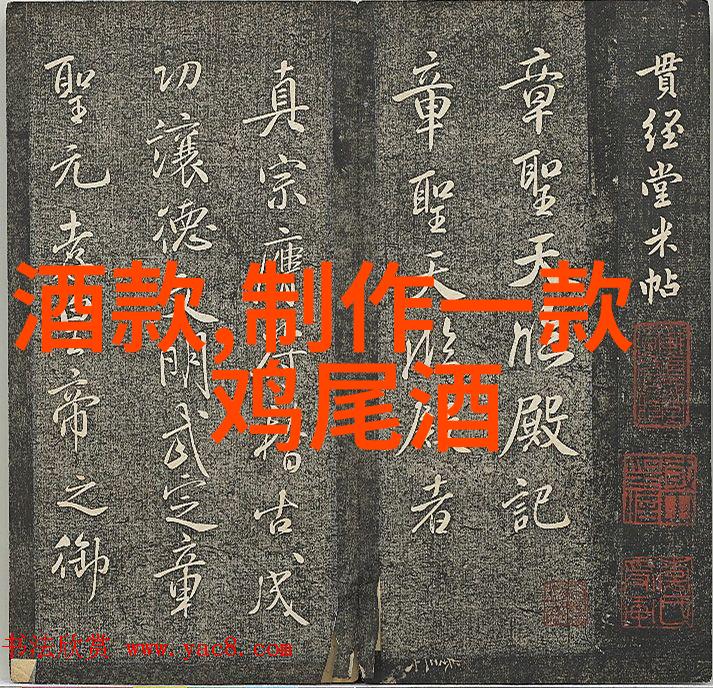 貫經堂米帖
章聖天臨殿記
章聖天臨殿者
真宗膺符稽古成
功讓德文明武定章
聖元孝皇帝之御
酒款,制作一款
鸡尾酒
书法欣赏 www.yac8.com